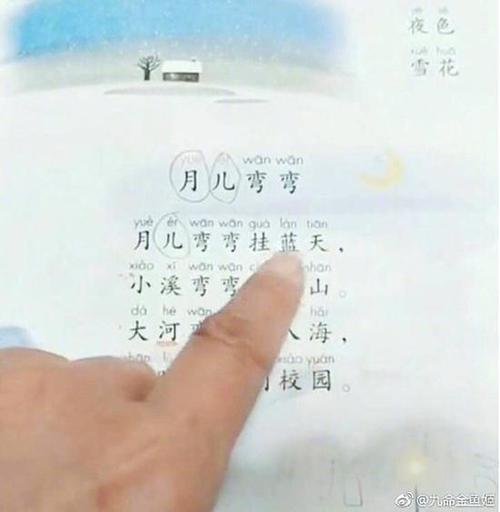 yè sè
夜色
xuě huā
雪花
yuè ér wān wān
月儿弯弯
yuè ér wān wān guà lán tiān
月儿弯弯挂蓝天，
xiǎo xī wān wān
小溪弯弯 山。
dà hé wān hǎi
大河弯 海，
xiào yuán
校园。
@九命金鱼姬